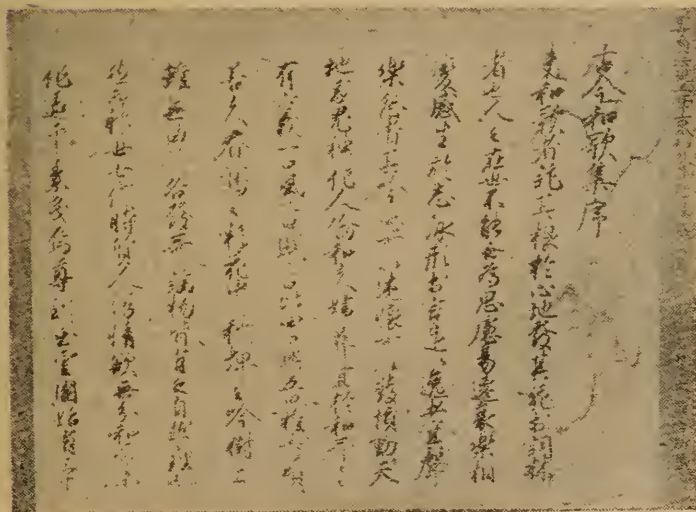 古今和歌集序
夫和歌者託其根於心地發其花於詞林
者也人之在世不能無為思慮易遷哀樂相
變感生於志詠形於言是以逸者其聲
樂怨者其吟悲可以述懷可以發憤動天
地感鬼神化人倫和夫婦莫宜於和歌々
有六義一曰風二曰賦三曰比四曰興五曰雅六曰頌
若夫春鶯之囀花中秋蟬之吟樹上
雖無曲折各發歌謠物皆有之自然之理
然而神世七代時質人淳情欲無分和歌未
作逮于素戔烏尊到出雲國始有